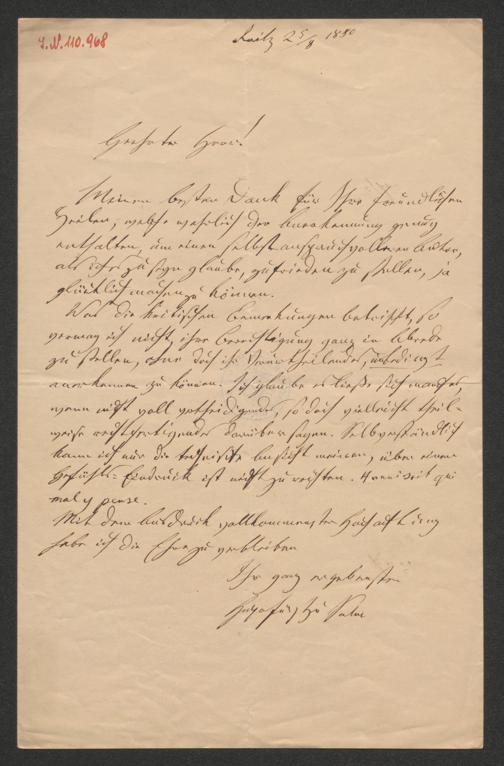 I.N. 110.968
Raitz 25/8 1880
Geehrter Herr!
Meinen besten Dank für Ihre freundlichen
Zeilen, welche wahrlich der Anerkennung genug
enthalten, um einen selbst anspruchsvolleren Autor,
als ich es zu sein glaube, zufrieden zu stellen, ja
glücklich machen zu können.
Was die kritischen Bemerkungen betrifft, so
vermag ich nicht, ihre Berechtigung ganz in Abrede
zu stellen, ohne doch ihr unbedingt
anerkennen zu können. Ich glaube es ließe sich manches
wenn nicht voll vertheidigendes, so doch vielleicht theil-
weise rechtfertigendes darüber sagen. Selbverständlich
kann ich nur die technische Ansicht meinen, über einen
Gefühls-Eindruck ist nicht zu rechten. Honni soit qui
mal y pense.
Mit dem Ausdruck vollkommenster Hochachtung
habe ich die Ehre zu verbleiben
Ihr ganz ergebenster
zu Salm